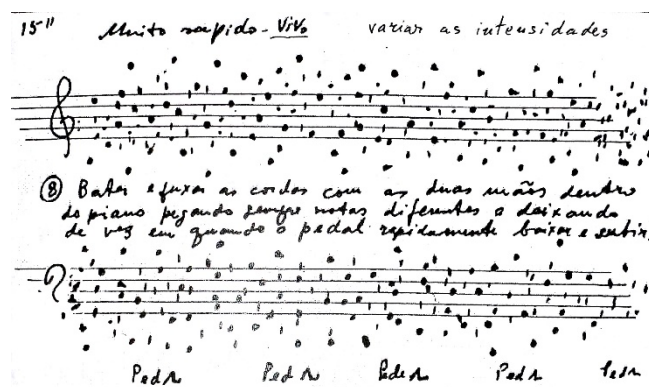 15" Muito rápido - Vivo variar as intensidades
⑧ Bater e puxar as cordas com as duas mãos dentro
do piano pegando sempre notas diferentes e deixando
de vez em quando o pedal rapidamente baixar e subir,
Ped Ped Ped Ped Ped